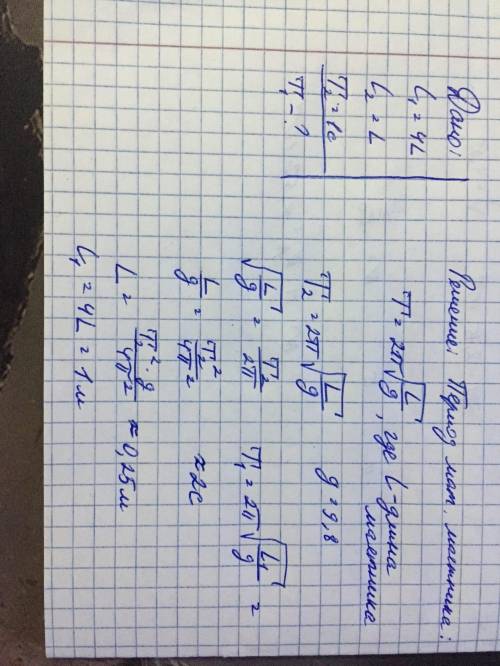 Дано:
L₁ = 4L
L₂ = L
T₂ = 1c
T₁ - ?
Решение: Период мат. маятника:
T = 2π√(L/g), где L - длина
маятника
T₂ = 2π√(L/g) g = 9,8
√(L/g) = T₂/2π T₁ = 2π√(L₁/g) =
L/g = T₂²/4π² ≈ 2c
L = T₂²·g/4π² ≈ 0,25м
L₁ = 4L = 1м